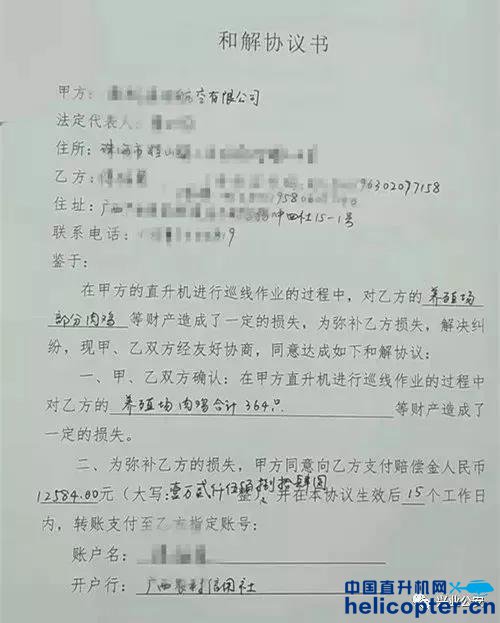 和解协议书
甲方：航空有限公司
法定代表人：
住所：珠海市
乙方：96302097158
住址：广西中田社15-1号
联系电话：19
鉴于：
在甲方的直升机进行巡线作业的过程中，对乙方的养殖场
部分肉鸡等财产造成了一定的损失，为弥补乙方损失，解决纠
纷，现甲、乙双方经友好协商，同意达成如下和解协议：
一、甲、乙双方确认：在甲方直升机进行巡线作业的过程中
对乙方的养殖场肉鸡合计364只等财产造成了
一定的损失。
二、为弥补乙方的损失，甲方同意向乙方支付赔偿金人民币
12584.00元（大写：壹万贰仟伍佰捌拾肆圆），并在本协议生效后15个工作日
内，转账支付至乙方指定账号：
账户名：
开户行：广西农村信用社
中国直升机网
helicopter.cn
兴业公安